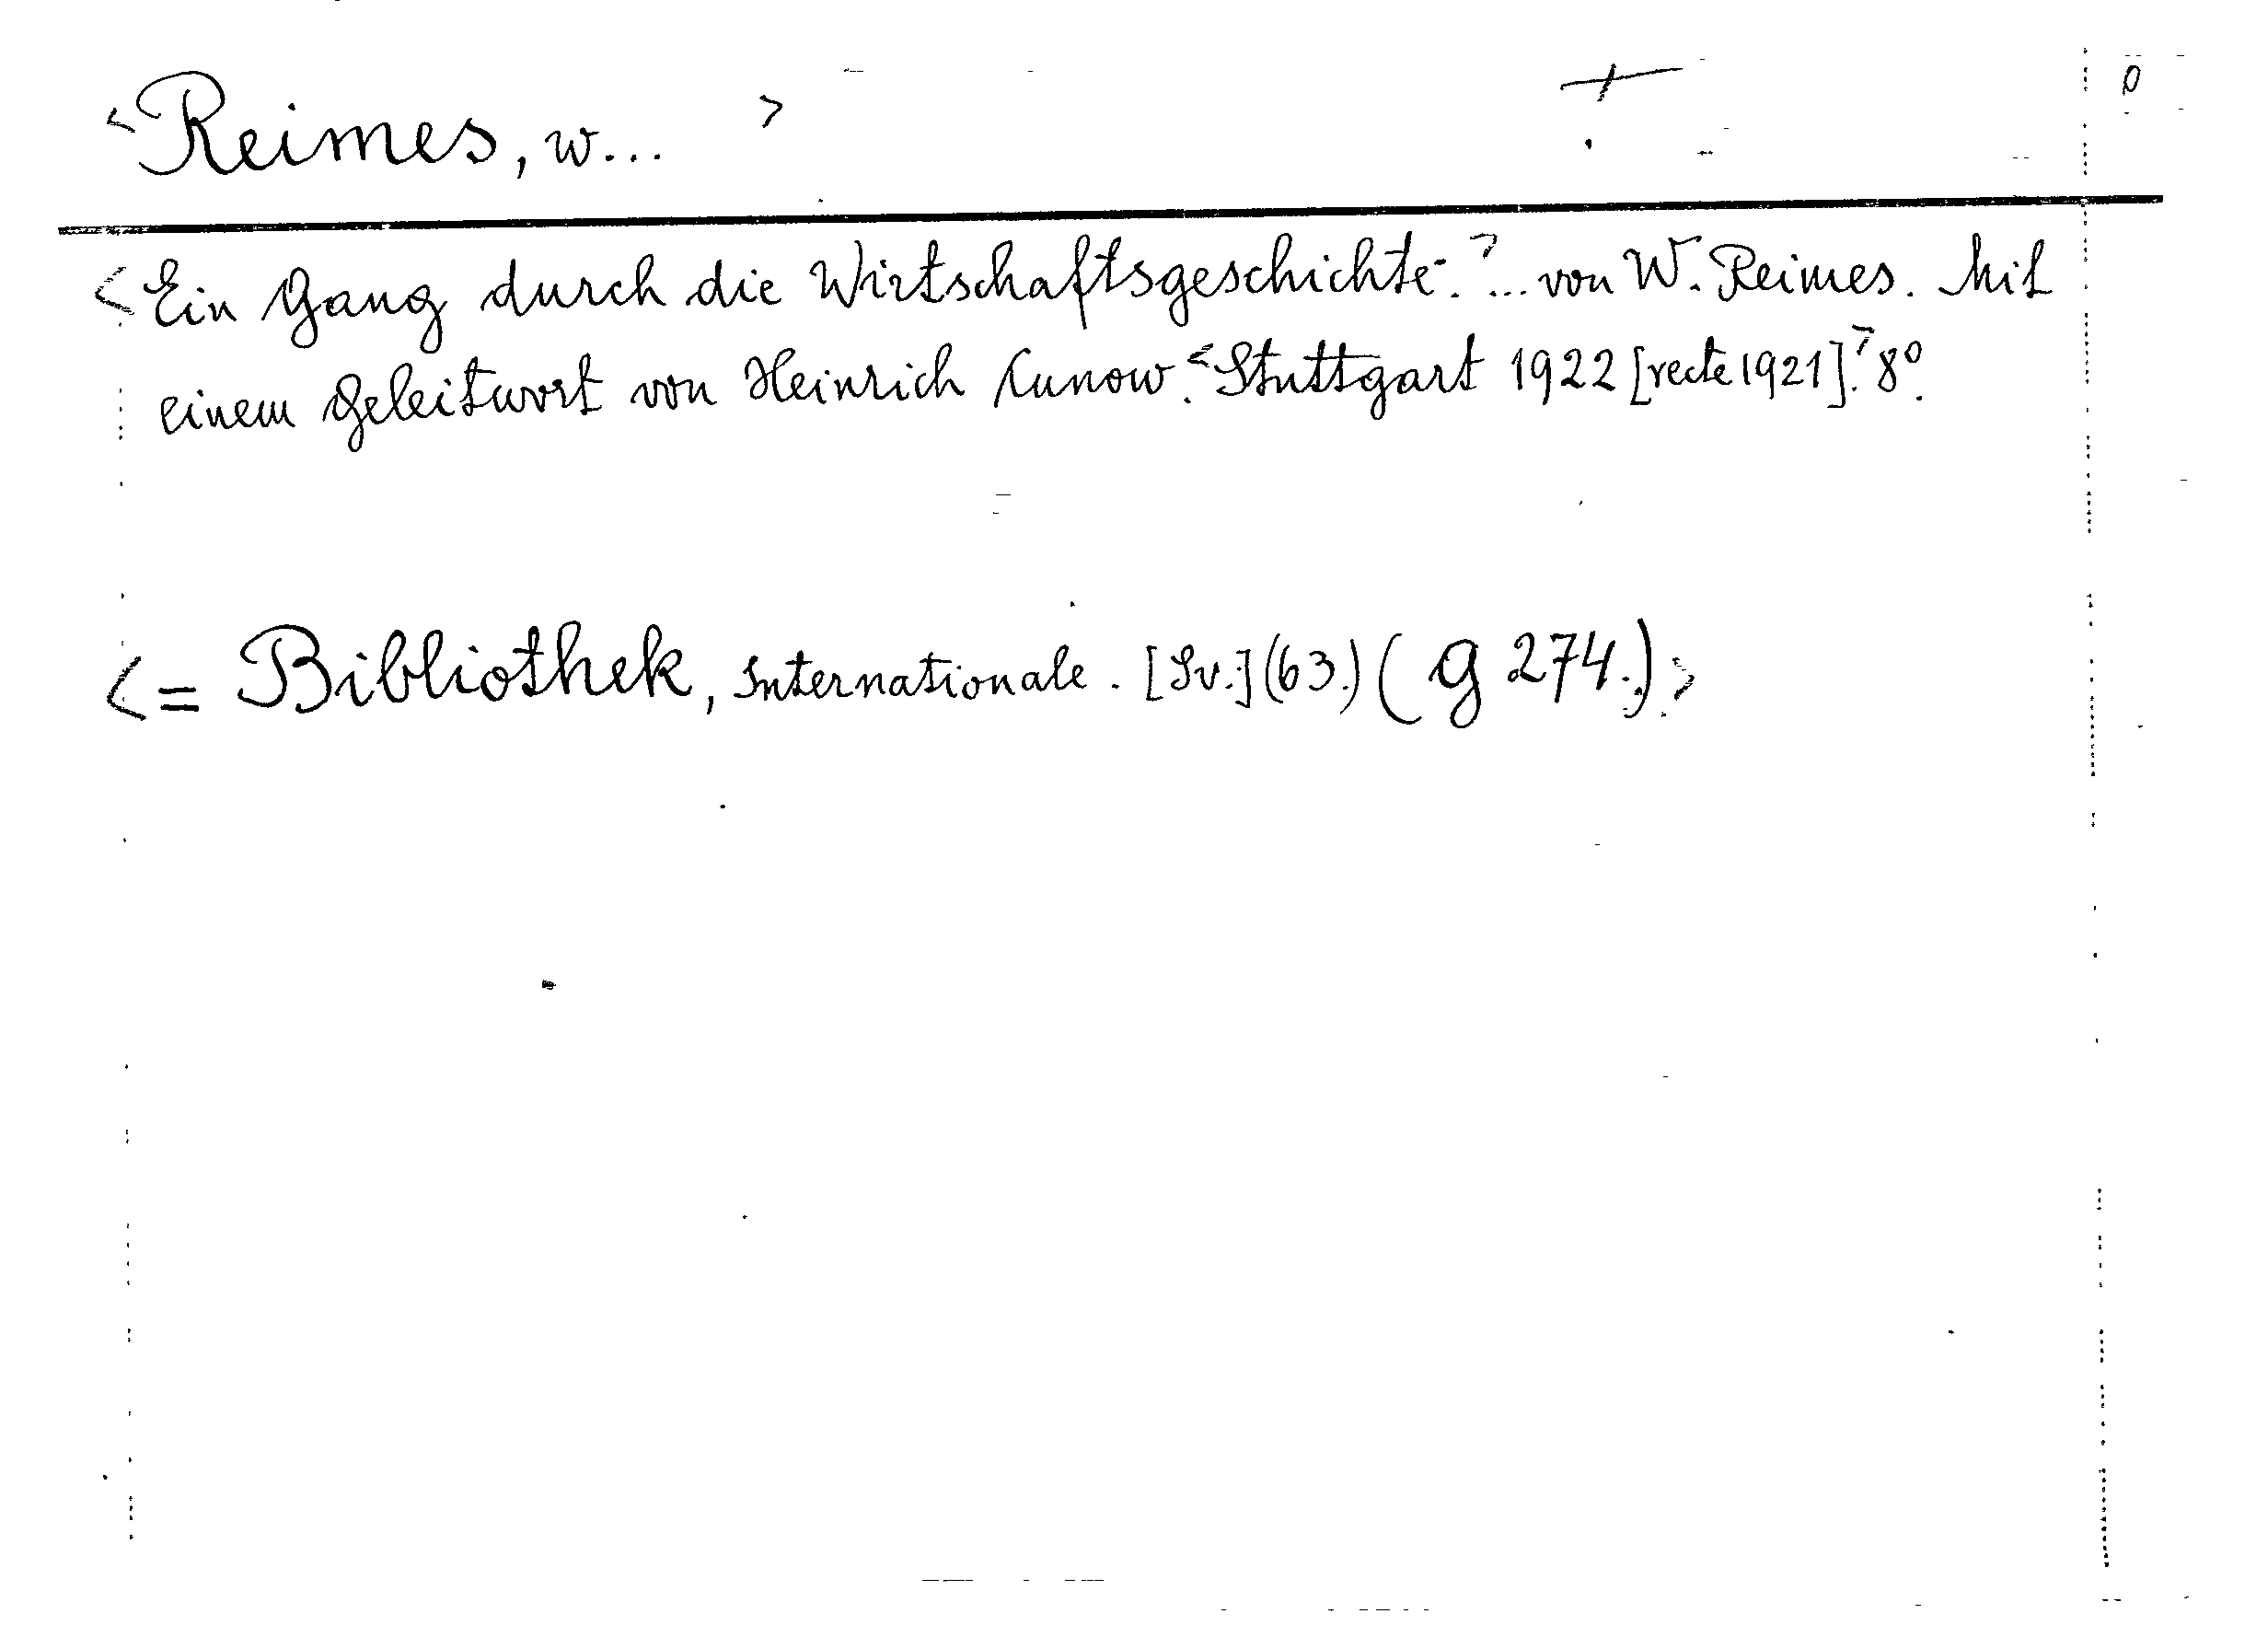 <Reimes, W... >
<Ein Gang durch die Wirtschaftsgeschichte.> ... von W. Reimes. Mit
einem Geleitwort von Heinrich Cunow. <Stuttgart 1922 [recte 1921].> 8°.
<= Bibliothek, Internationale. [Sv.] (63.) (g 274.)>